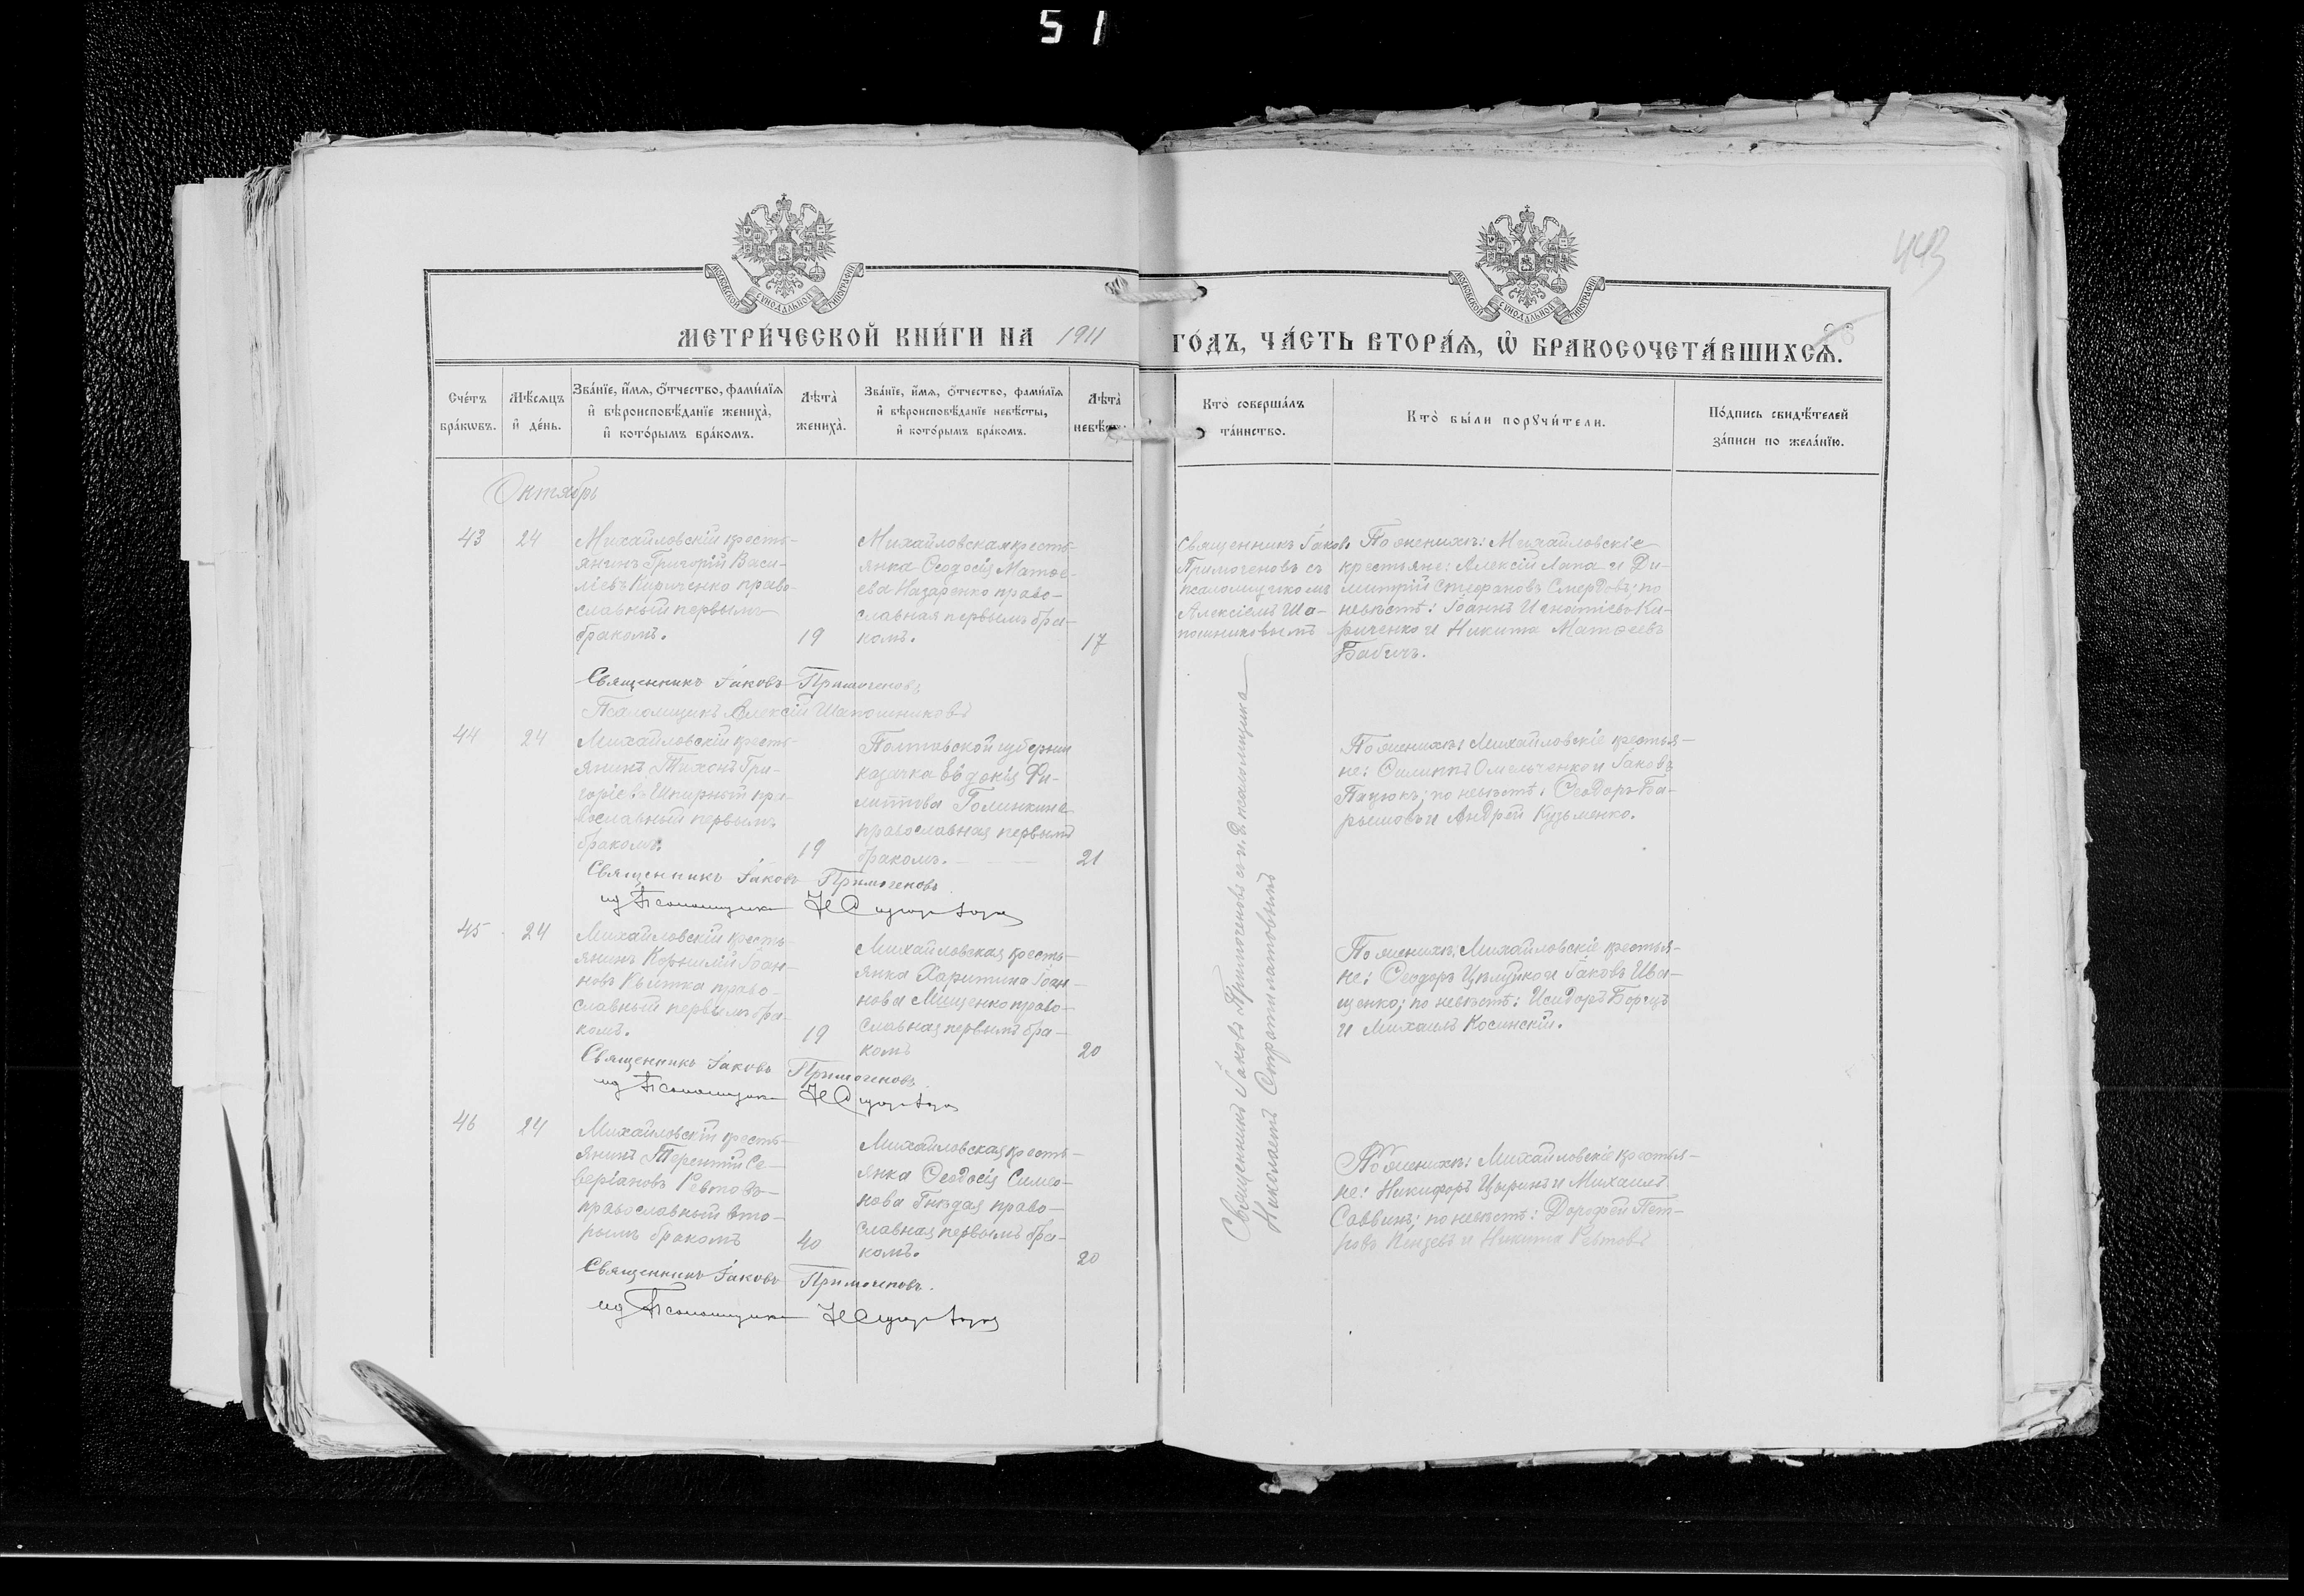 51
443
МОСКОВСКОЙ СУНОДАЛЬНОЙ ТИПОГРАФІИ
МОСКОВСКОЙ СУНОДАЛЬНОЙ ТИПОГРАФІИ
МЕТРИ́ЧЕСКОЙ КНИ́ГИ НА 1911
ГО́ДЪ, ЧА́СТЬ ВТОРА́Ѧ, Ѽ БРАКОСОЧЕТА́ВШИХСѦ.
Сче́тъ
бра́кѡвъ.
Мѣ́сѧцъ
и҆ де́нь.
Зва́нїе, и҆́мѧ, ѻ҆́тчество, фами́лїѧ
и҆ вѣроисповѣ́данїе жениха̀,
и҆ кото́рымъ бра́комъ.
Лѣта̀
жениха̀.
Зва́нїе, и҆́мѧ, ѻ҆́тчество, фами́лїѧ
и҆ вѣроисповѣ́данїе невѣ́сты,
и҆ кото́рымъ бра́комъ.
Лѣта̀
Кто̀ соверша́лъ
та́инство.
Кто̀ бы́ли порꙋчи́тели.
По́дпись свидѣ́телей
за́писи по жела́нїю.
Октябрь
43
24
Михайловскій кресть-
янинъ Григорій Васи-
ліевъ Кириченко право-
славный первымъ
бракомъ.
19
Михайловская кресть-
янка Ѳеодосія Матѳе-
ева Назаренко право-
славная первымъ бра-
комъ.
17
Священникъ Іаковъ
Примогеновъ съ
псаломщикомъ
Алексіемъ Ша-
пошниковымъ
По женихѣ: Михайловскіе
крестьяне: Алексій Лапа и Ди-
митрій Стефановъ Смердовъ; по
невѣстѣ: Іоаннъ Игнатіевъ Ки-
риченко и Никита Матѳеевъ
Бабичъ.
Священникъ Іаковъ Примогеновъ
Псаломщикъ Алексій Шапошниковъ
44
24
Михайловскій кресть-
янинъ Тихонъ Гри-
горіевъ Шкирный пра-
вославный первымъ
бракомъ.
19
Полтавской губерніи
казачка Евдокія Фи-
липпова
православная первымъ
бракомъ.
21
По женихѣ: Михайловскіе крестья-
не: Филиппъ Омельченко и Іаковъ
Пацюкъ; по невѣстѣ: Ѳеодоръ Ба-
рышовъ и Андрей Кузьменко.
Священникъ Іаковъ Примогеновъ
ид Псаломщика
45
24
Михайловскій кресть-
янинъ Корнилій Іоан-
новъ Квитка право-
славный первымъ бра-
комъ.
19
Михайловская кресть-
янка Харитина Іоан-
нова Мищенко право-
славная первымъ бра-
комъ
20
По женихѣ: Михайловскіе крестья-
не: Ѳеодоръ и Іаковъ Ива-
щенко; по невѣстѣ: Исидоръ Борецъ
и Михаилъ Косинскій.
Священникъ Іаковъ Примогеновъ
ид Псаломщика
46
24
Михайловскій кресть-
янинъ Терентій Се-
веріановъ Ревтовъ
православный вто-
рымъ бракомъ
40
Михайловская кресть-
янка Ѳеодосія Симео-
нова Гнѣдая право-
славная первымъ бра-
комъ.
20
По женихѣ: Михайловскіе крестья-
не: Никифоръ Цыринъ и Михаилъ
Саввинъ; по невѣстѣ: Дорофей Пет-
ровъ и Никита Ревтовъ
Священникъ Іаковъ Примогеновъ.
ид Псаломщика
Священникъ Іаковъ Примогеновъ съ и. д. псаломщика
Николаемъ